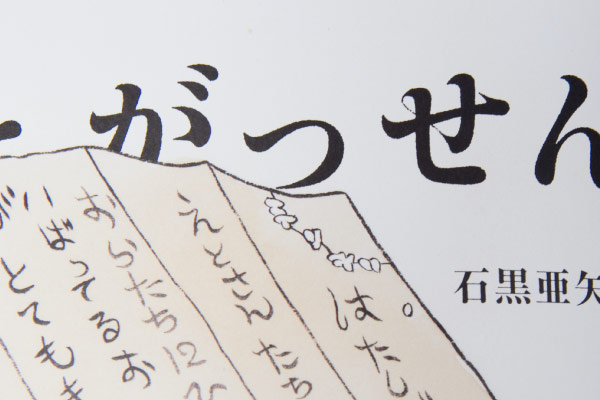 がっせん
石黒亜矢
はたし
えとさんたち
おらたちに
いばってるお
とてもき